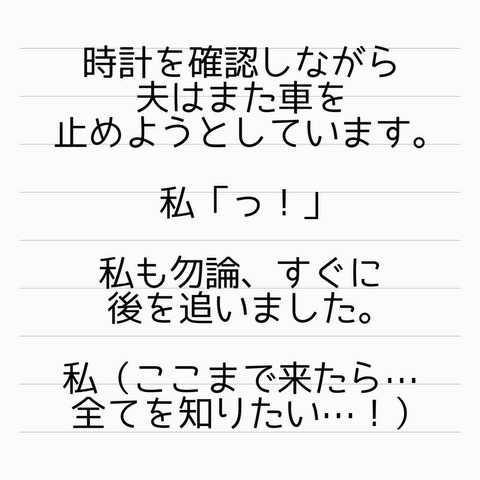 時計を確認しながら
夫はまた車を
止めようとしています。
私「っ！」
私も勿論、すぐに
後を追いました。
私（ここまで来たら…
全てを知りたい…！）